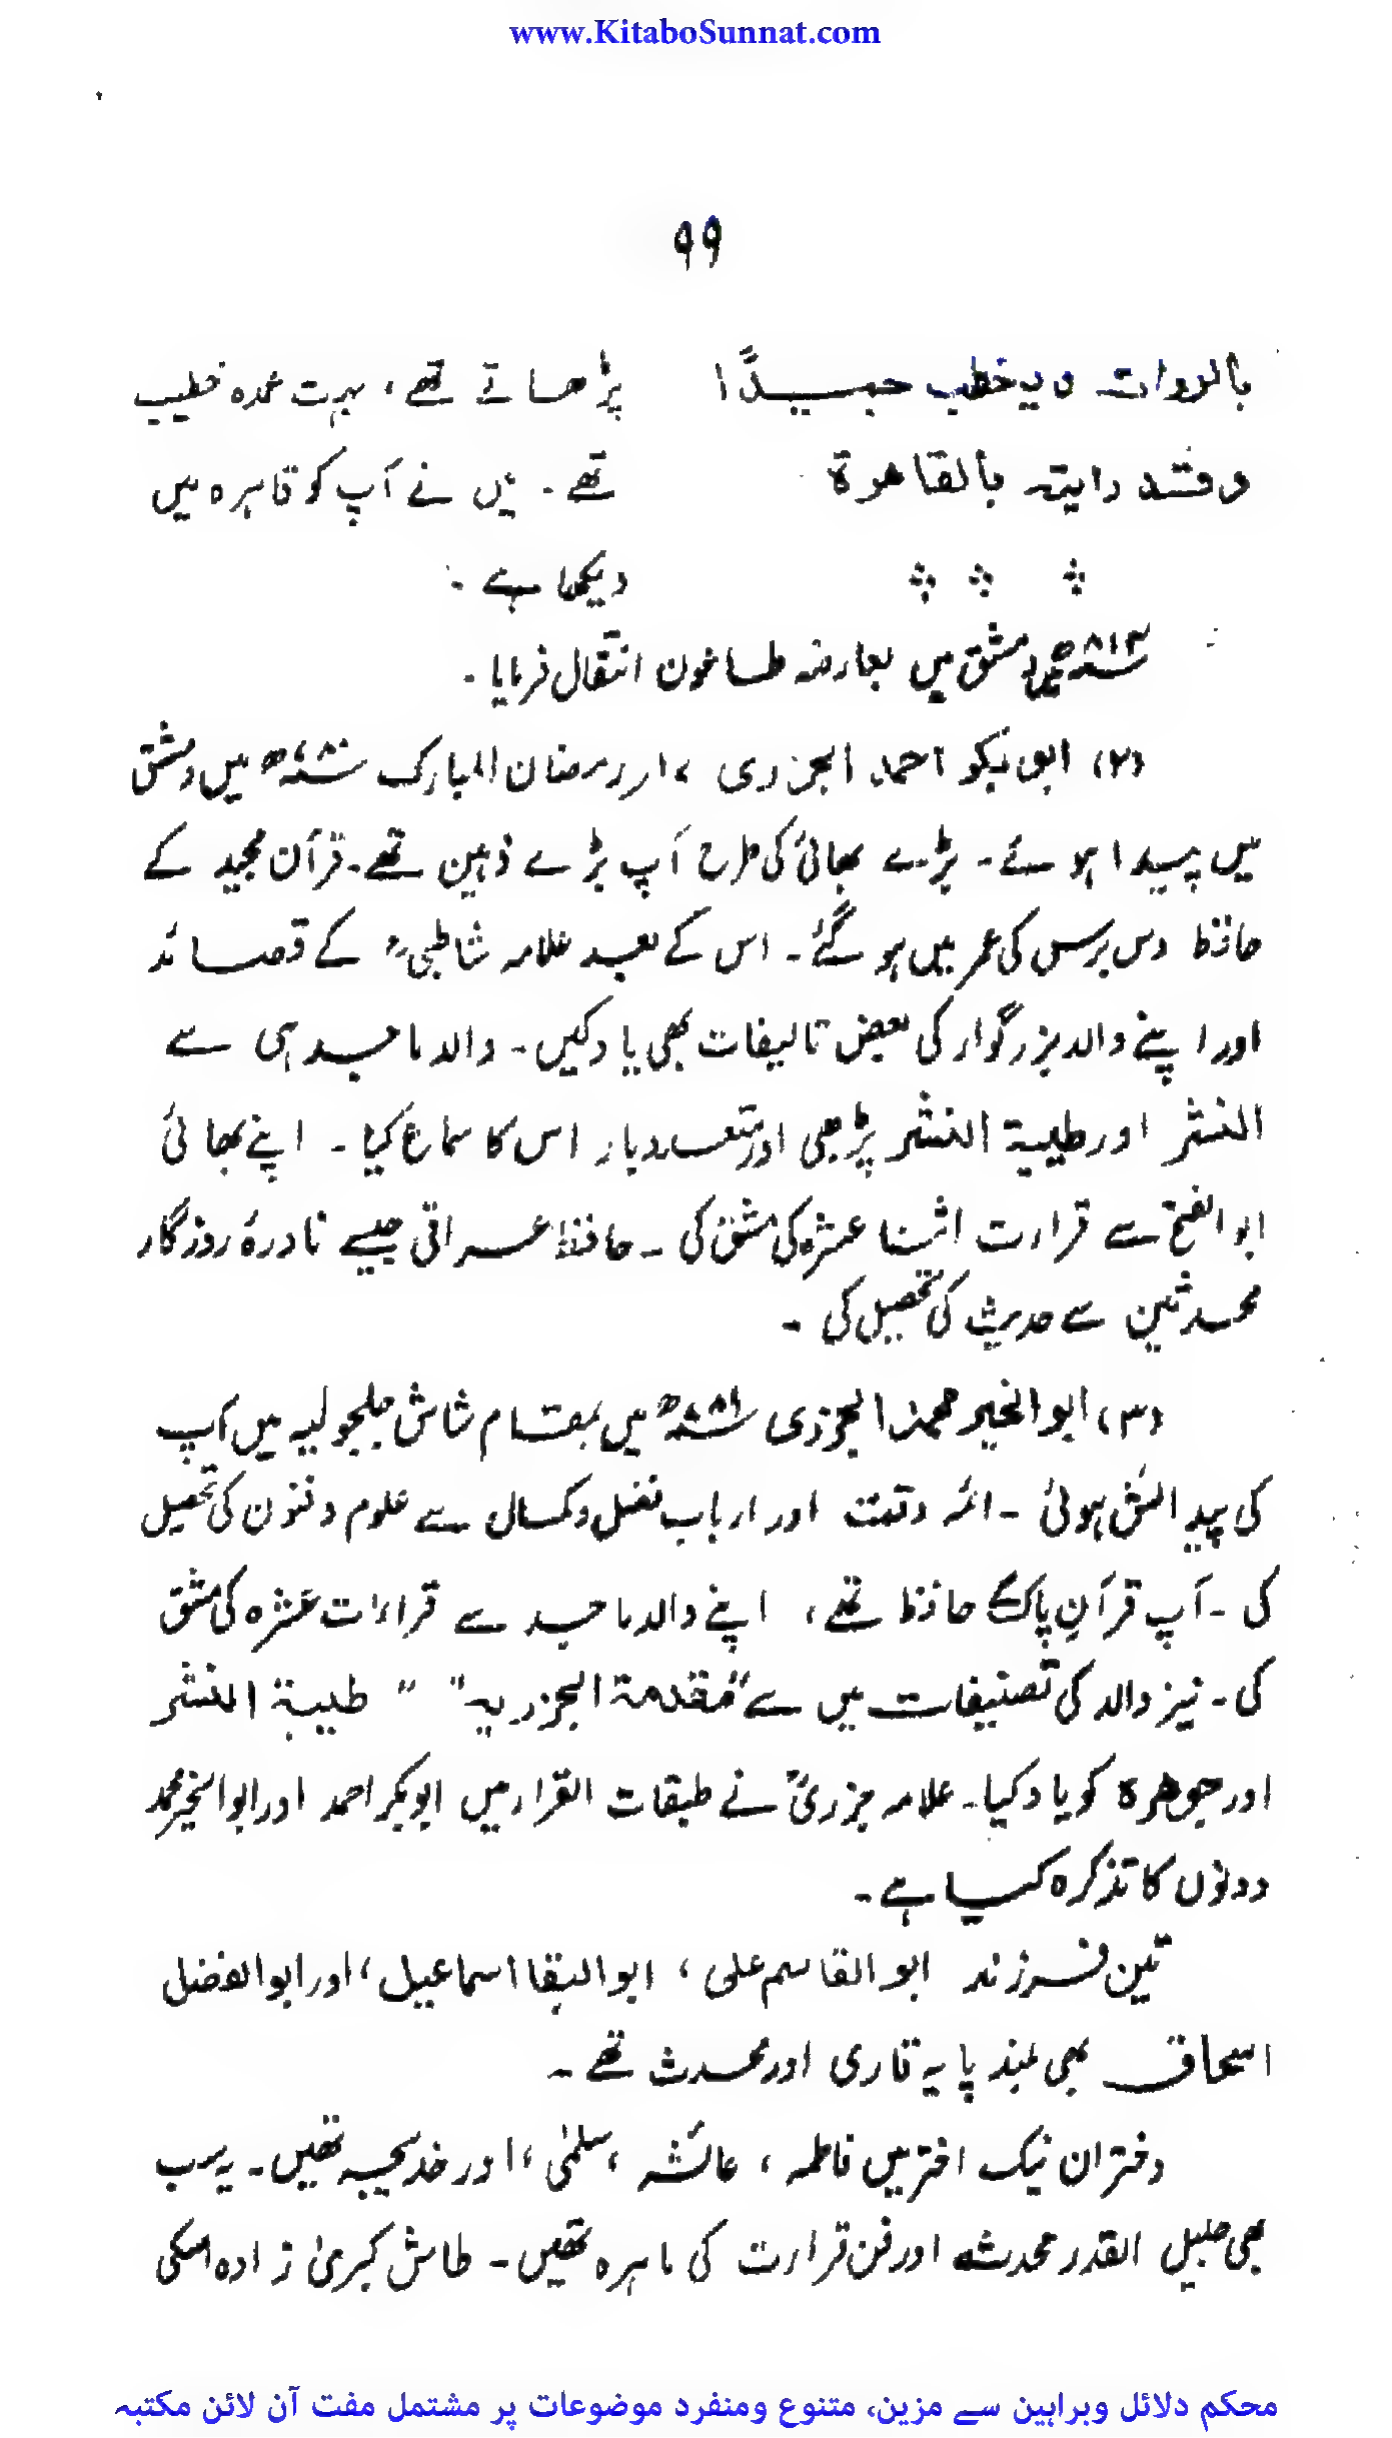 www.KitaboSunnat.com
۹۹
بالروات ويخطب جيدًا پڑھاتے تھے، بہت عمدہ خطیب
وقد رايته بالقاهرة تھے۔ میں نے آپ کو قاہرہ میں
دیکھا ہے۔
۸۱۴ھ میں دمشق میں بعارضہ طاعون انتقال فرمایا۔
(۲) ابوبکر احمد الجزری ۱۷ر رمضان المبارک ۷۸۰ھ میں دمشق
میں پیدا ہوئے۔ بڑے بھائی کی طرح آپ بڑے ذہین تھے۔ قرآن مجید کے
حافظ دس برس کی عمر میں ہو گئے۔ اس کے بعد علامہ شاطبیؒ کے قصائد
اور اپنے والد بزرگوار کی بعض تالیفات بھی یاد کیں۔ والد ماجد ہی سے
النشر اور طیبۃ النشر پڑھی اور متعدد بار اس کا سماع کیا۔ اپنے بھائی
ابو الفتح سے قرارت اثنا عشرہ کی مشق کی۔ حافظ عراقی جیسے نادرۂ روزگار
محدثین سے حدیث کی تحصیل کی۔
(۳) ابو الخیر محمد الجزری ۷۸۹ھ میں بمقام شاش جلجولیہ میں آپ
کی پیدائش ہوئی۔ ائمہ وقت اور ارباب فضل و کمال سے علوم و فنون کی تحصیل
کی۔ آپ قرآنِ پاک کے حافظ تھے، اپنے والد ماجد سے قراءات عشرہ کی مشق
کی۔ نیز والد کی تصنیفات میں سے "مقدمۃ الجزریہ" " طیبۃ النشر
اور جوھرۃ کو یاد کیا۔ علامہ جزریؒ نے طبقات القرار میں ابوبکر احمد اور ابوالخیر محمد
دونوں کا تذکرہ کیا ہے۔
تین فرزند ابو القاسم علی، ابو البقا اسماعیل، اور ابو الفضل
اسحاق بھی بلند پایہ قاری اور محدث تھے۔
دختران نیک اختر میں فاطمہ، عائشہ، سلمیٰ، اور خدیجہ تھیں۔ یہ سب
بھی جلیل القدر محدثہ اور فن قرارت کی ماہرہ تھیں۔ طاش کبریٰ زادہ اسکی
محکم دلائل وبراہین سے مزین، متنوع ومنفرد موضوعات پر مشتمل مفت آن لائن مکتبہ